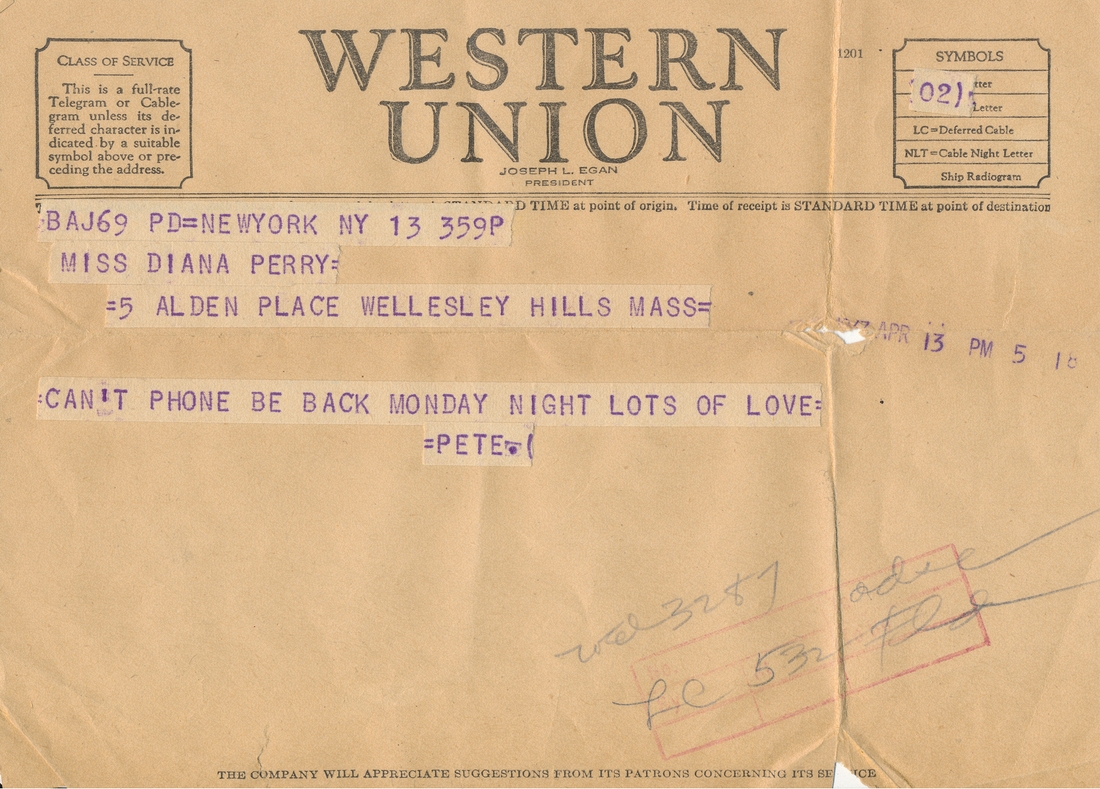 WESTERN
UNION
1201
CLASS OF SERVICE
This is a full-rate
Telegram or Cable-
gram unless its de-
ferred character is in-
dicated by a suitable
symbol above or pre-
ceding the address.
JOSEPH L. EGAN
PRESIDENT
SYMBOLS
(02)
tter
Letter
LC=Deferred Cable
NLT=Cable Night Letter
Ship Radiogram
STANDARD TIME at point of origin. Time of receipt is STANDARD TIME at point of destination
BAJ69 PD=NEWYORK NY 13 359P
MISS DIANA PERRY=
=5 ALDEN PLACE WELLESLEY HILLS MASS=
APR 13 PM 5 18
:CAN'T PHONE BE BACK MONDAY NIGHT LOTS OF LOVE=
=PETE.(
3287
LC 532
THE COMPANY WILL APPRECIATE SUGGESTIONS FROM ITS PATRONS CONCERNING ITS SE ICE